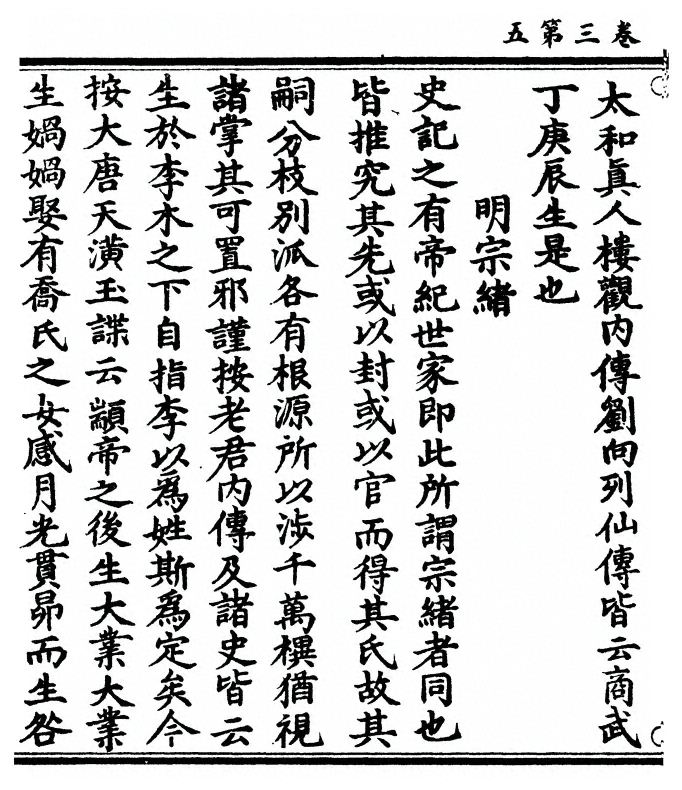 卷三第五
太和眞人樓觀內傳劉向列仙傳皆云商武
丁庚辰生是也
明宗緒
史記之有帝紀世家即此所謂宗緒者同也
皆推究其先或以封或以官而得其氏故其
嗣分枝別派各有根源所以涉千萬𣝕猶視
諸掌其可置邪謹按老君內傳及諸史皆云
生於李木之下自指李以爲姓斯爲定矣今
按大唐天潢玉諜云顓帝之後生大業大業
生媧媧娶有喬氏之女感月光貫昴而生咎